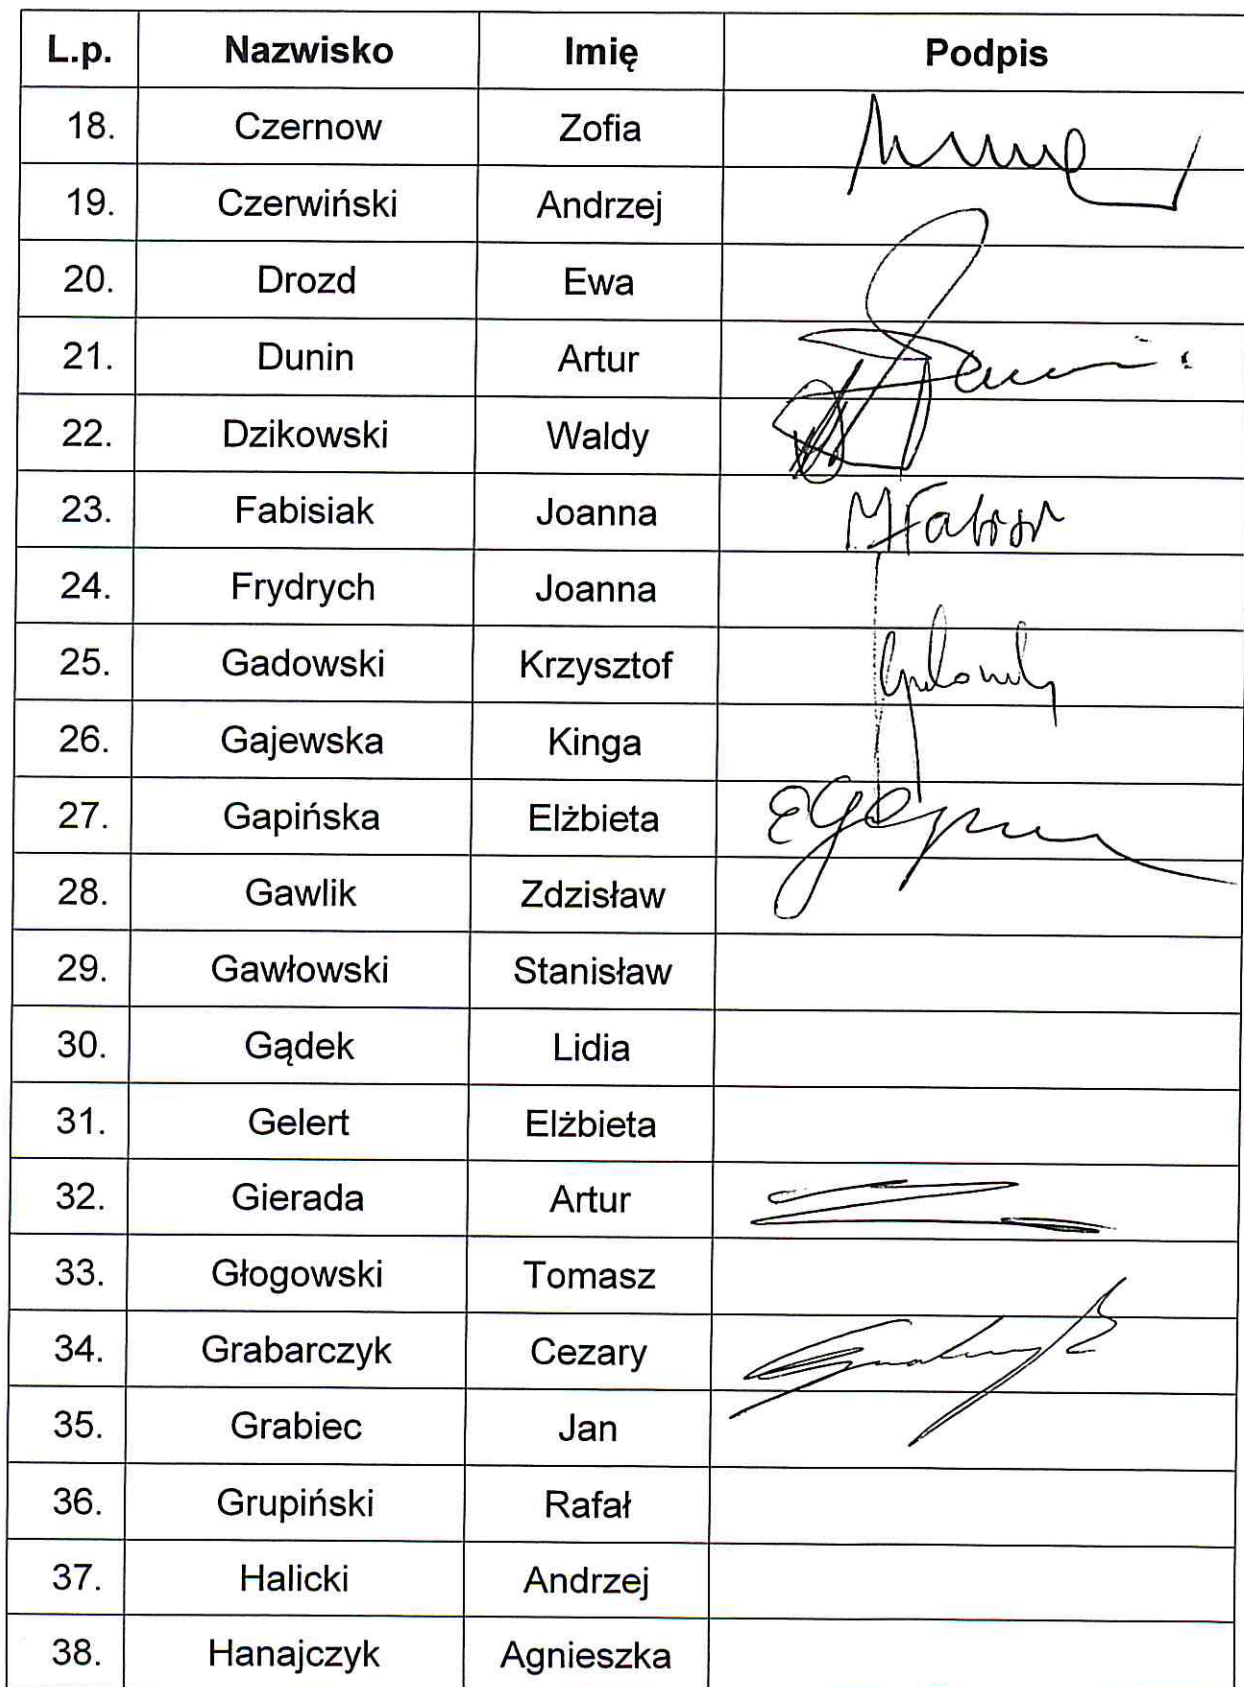 L.p. Nazwisko Imię Podpis
18. Czernow Zofia
19. Czerwiński Andrzej
20. Drozd Ewa
21. Dunin Artur
22. Dzikowski Waldy
23. Fabisiak Joanna
24. Frydrych Joanna
25. Gadowski Krzysztof
26. Gajewska Kinga
27. Gapińska Elżbieta
28. Gawlik Zdzisław
29. Gawłowski Stanisław
30. Gądek Lidia
31. Gelert Elżbieta
32. Gierada Artur
33. Głogowski Tomasz
34. Grabarczyk Cezary
35. Grabiec Jan
36. Grupiński Rafał
37. Halicki Andrzej
38. Hanajczyk Agnieszka